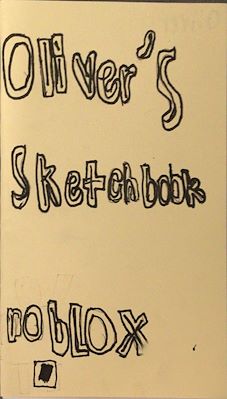 Oliver's
Sketchbook
roblox